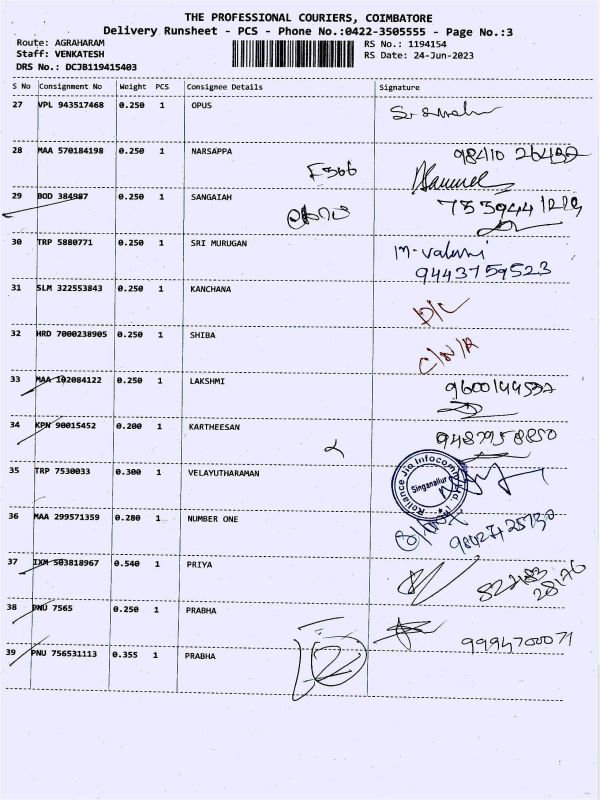 THE PROFESSIONAL COURIERS, COIMBATORE
Delivery Runsheet - PCS - Phone No.:0422-3505555 - Page No.:3
Route: AGRAHARAM
RS No.: 1194154
Staff: VENKATESH
RS Date: 24-Jun-2023
DRS No.: DCJB119415403
S No Consignment No Weight PCS Consignee Details Signature
27 VPL 943517468 0.250 1 OPUS
28 MAA 570184198 0.250 1 NARSAPPA 98410 26432
F366
29 BOD 384987 0.250 1 SANGAIAH
30 TRP 5880771 0.250 1 SRI MURUGAN
9443759523
31 SLM 322553843 0.250 1 KANCHANA D/C
32 HRD 7000238905 0.250 1 SHIBA C/N/R
33 MAA 102084122 0.250 1 LAKSHMI
34 KPN 90015452 0.200 1 KARTHEESAN
35 TRP 7530033 0.300 1 VELAYUTHARAMAN
Reliance Jio Infocomm Ltd.
Singanallur
36 MAA 299571359 0.280 1 NUMBER ONE
37 IXM 503818967 0.540 1 PRIYA
38 PNU 7565 0.250 1 PRABHA
9994700071
39 PNU 756531113 0.355 1 PRABHA